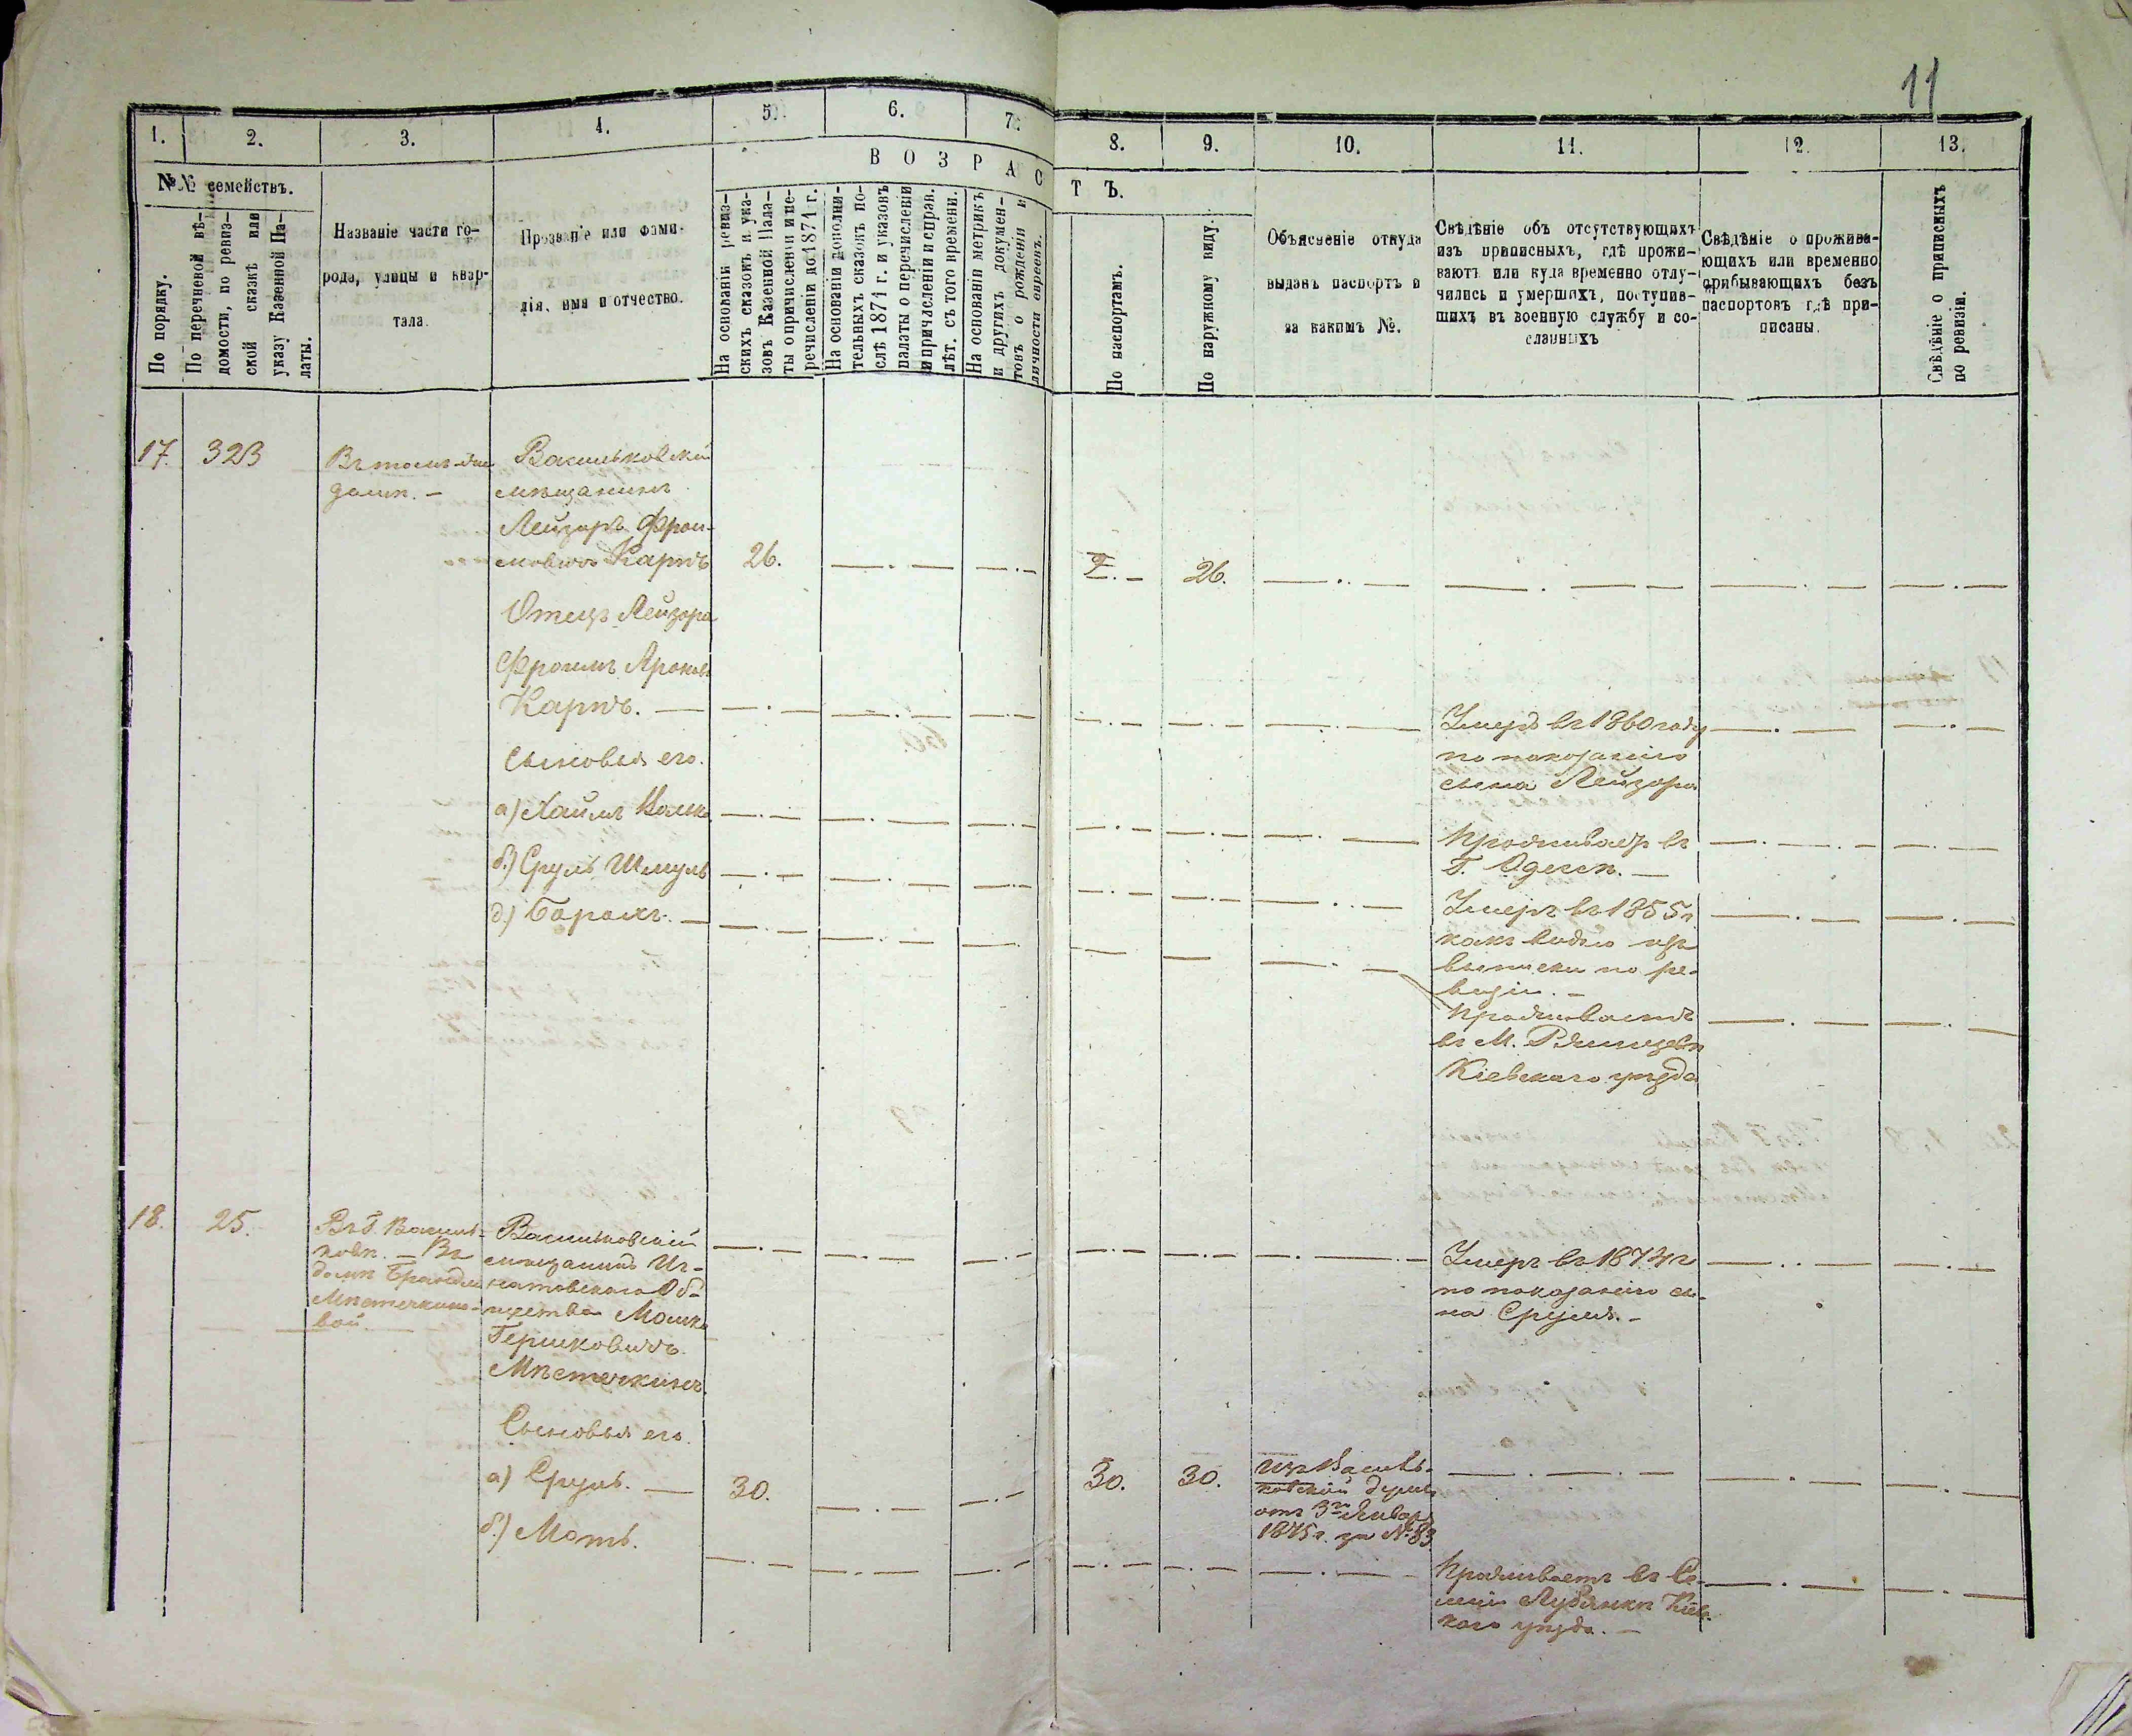 11
1.
2.
3.
4.
5.
6.
7.
8.
9.
10.
11.
12.
13.
№№ семействъ.
В О З Р А С
Т Ъ.
По порядку.
По перечневой вѣ-
домости, по ревиз-
ской сказкѣ или
указу Казенной Па-
латы.
Названіе части го-
рода, улицы и квар-
тала.
Прозваніе или фами-
лія, имя и отчество.
На основаніи ревиз-
скихъ сказокъ и ука-
зовъ Казенной Пала-
ты о причисленіи и пе-
речисленіи до 1874 г.
На основаніи дополни-
тельныхъ сказокъ по-
слѣ 1874 г. и указовъ
палаты о перечисленіи
и причисленіи и справ.
лѣт. съ того времени.
На основаніи метрикъ
и другихъ докумен-
товъ о рожденіи и
личности евреевъ.
По паспортамъ.
По наружному виду.
Объясненіе откуда
выданъ паспортъ и
за какимъ №.
Свѣдѣніе объ отсутствующихъ
изъ приписныхъ, гдѣ прожи-
ваютъ или куда временно отлу-
чились и умершихъ, поступив-
шихъ въ военную службу и со-
сланныхъ
Свѣдѣніе о прожива-
ющихъ или временно
прибывающихъ безъ
паспортовъ гдѣ при-
писаны.
Свѣдѣніе о приписныхъ
по ревизіи.
17.
323
Въ томъ-же
домѣ. —
Васильковскій
мѣщанинъ
Лейзоръ Фрои-
мовичъ Карпъ
26.
26.
Отецъ Лейзора
Фроимъ Ароновъ
Карпъ. —
Умеръ въ 1860 году
по показанію
сына Лейзора
Сыновья его.
а) Хаимъ Волько
Проживаетъ въ
Г. Одессѣ. —
б) Сруль Шмуль
Умеръ въ 1855 г
какъ видно изъ
выписки по ре-
визіи. —
д) Борохъ. —
Проживаетъ
въ М. Ржищевѣ
Кіевскаго уѣзда
18.
25.
Въ Г. Василь-
ковѣ. — Въ
домѣ Брандли
Мѣстечкино-
вой.
Васильковскій
мѣщанинъ Иг-
натовскаго Об-
щества Мошко
Гершковичъ
Мѣстечкинъ.
Умеръ въ 1874 г
по показанію сы-
на Сруля. —
Сыновья его.
а) Сруль. —
30.
30.
30.
изъ Василь-
ковской Думы
отъ 3го Января
1875 г. за № 83.
б) Моть.
Проживаетъ въ Се-
леніи Лубянкѣ Кіев-
каго уѣзда. —